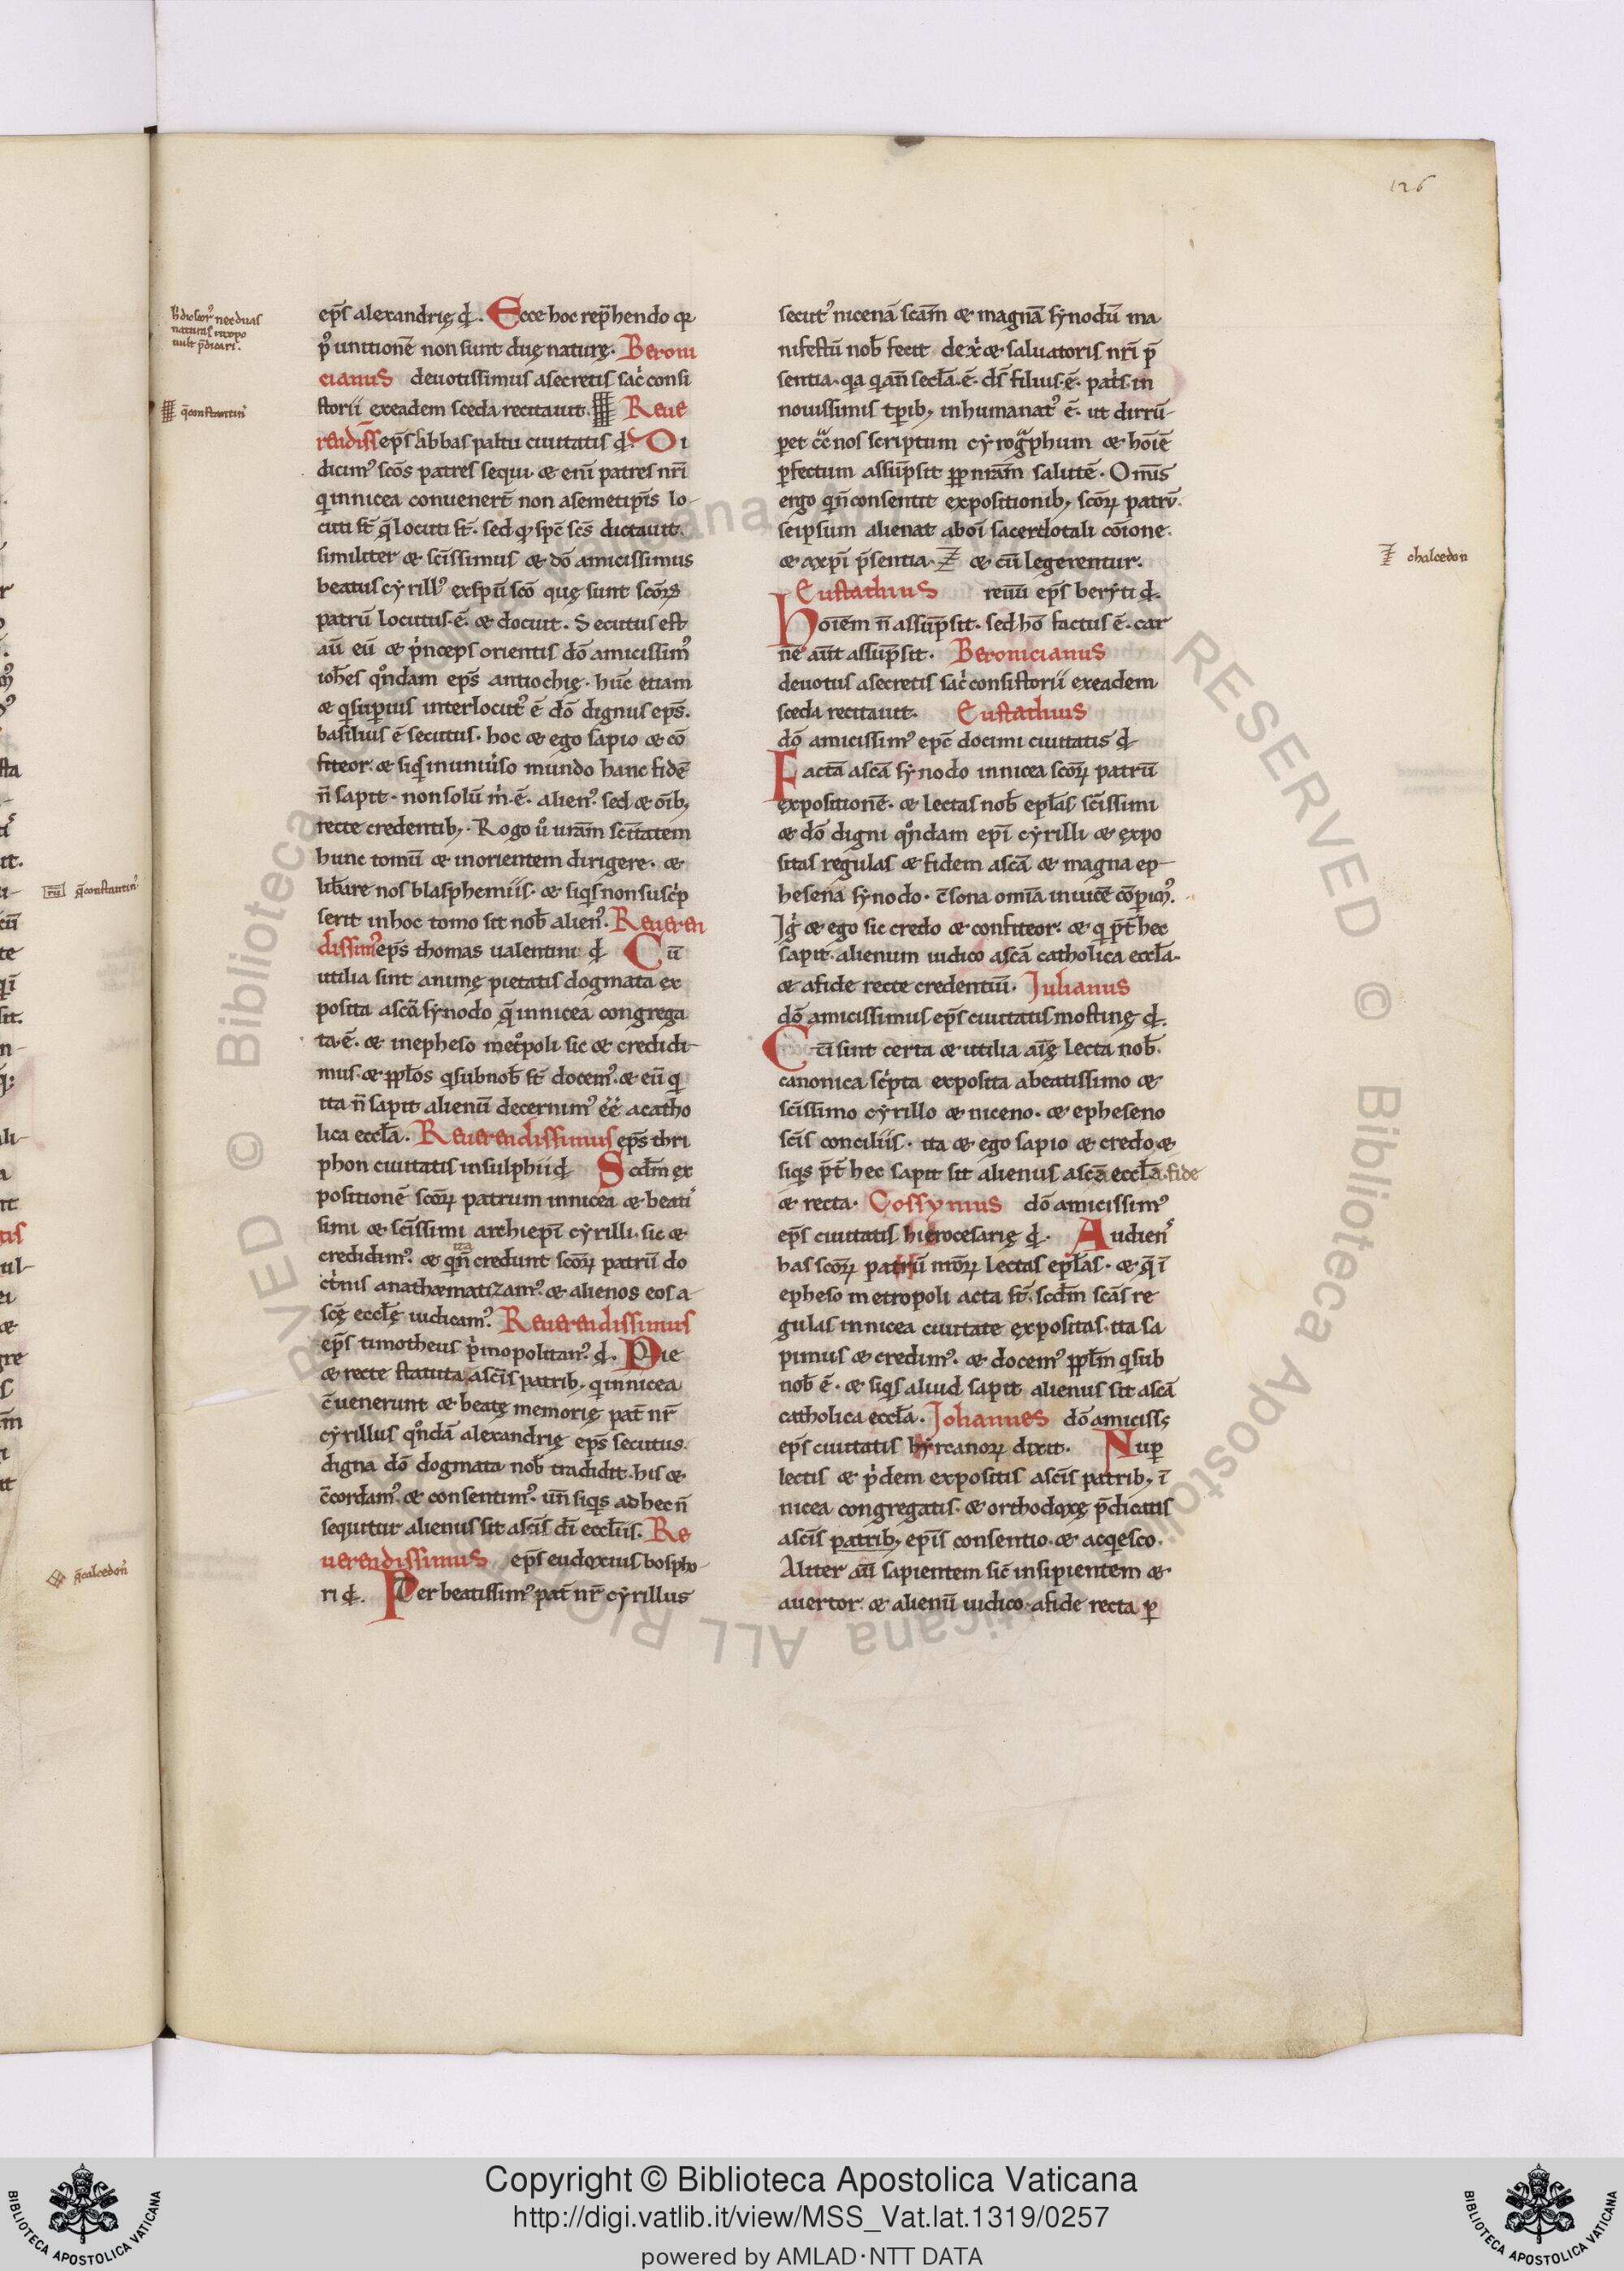 126
ep̄s alexandrię đ. Ecce hoc rep̄hendo qr
p᷒ unitionē non sunt duę naturę. Beroni
cianus deuotissimus asecretis sac̓ consi
storii exeadem sceda recitauit. Reue
rendiss̄ ep̄s Abbas paltu ciuitatis đ. Di
dicim᷒ scōs patres sequi. & eni̅ patres nr̄i
q innicea conuenert̄ non asemetip̄is lo-
cuti st̄ q̄ locuti st̄. sed qđ sp̄c sc̄s dictauit.
similiter & sc̄issimus & dō amicissimus
beatus cyrill᷒ ex sp̄u scō quę sunt scōꝝ
patrū locutus. ē. & docuit. Secutus est
aū eū & p̓nceps orientis dō amicissim᷒
ioh̄es qͦndam ep̄s antiochię. hūc etiam
& q sup̱ius interlocut᷒ ē dō dignus ep̄s.
basilius ē secutus. hoc & ego sapio & cō
fiteor. & siq̓s inuniu̓so mundo hanc fidē
n̄ sapit. non solū m̓. ē. alien᷒. sed & oīb;
recte credentib;. Rogo u̓ uram̄ scīatatem
hunc tomū & inorientem dirigere. &
lib̄are nos blasphemiis. & siq̓s non susc̓p
serit inhoc tomo sit nob̄ alien᷒. Reueren
dissim᷒ ep̄s thomas ualentini đ Cū
utilia sint animę pietatis dogmata ex
posita ascā synodo q̄ innicea congrega
ta. ē. & inepheso met̓poli sic & credidi-
mus. & pplōs q subnob̄ st̄ docem᷒. & eū q
ita n̄ sapit alienū decernim᷒ ēē acatho
lica eccl̄a. Reuerendissimus ep̄s thri
phon ciuitatis insulphii đ Scdm̄ ex
positionē scōꝝ patrum innicea & beatis
simi & sc̄issimi archiep̄i cyrilli. sic &
credidim᷒. & qn̄ ita credunt scōꝝ patrū do
ct̓nis anathematizam᷒. & alienos eos a
scę̄ eccl̄ę iudicam᷒. Reuerendissimus
ep̄s timotheus p̓mopolitan᷒. đ. Pie
& recte statuta. asc̄is patrib. q innicea
c̄uenerunt & beatę memorię pat̄ nr̄
cyrillus qͦndā alexandrię ep̄s secutus.
digna dō dogmata nob̄ tradidit. his &
c̄cordam᷒. & consentim᷒. un̄ siq̓s ad hec n̄
sequitur alienus sit asc̄is dī eccl̄iis. Re
uerendissimus ep̄s eudoxius bospho-
ri đ. Per beatissim᷒ pat̄ nr̄ cyrillus
secut᷒ nicenā scam̄ & magnā synodū ma
nifestū nob̄ fecit de x̓ & saluatoris nr̄i p̄
sentia. qa qan̄ secl̄a. ē. ds̄ filius. ē. pat̓s. in
nouissimis tp̱ib; inhumanat᷒ ē. ut dirrū-
peret c̄c nos scriptum cyrogphum & hoīē
ꝑfectum assūpsit pp̱ nram̄ salutē. Om̄is
ergo qn̄ consentit expositionib; scōꝝ patrū.
seipsum alienat aboī sacerdotali cōione.
& axp̄i p̄sentia. & cū legerentur.
Eustathius reuū ep̄s beryti đ.
Hoiēm n̄ assūpsit. sed hō factus ē. car
nē aūt assūpsit. Beronicianus
deuotus asecretis sac̓ consistorii exeadem
sceda recitauit. Eustathius
dō amicissim᷒ ep̄c docimi ciuitatis đ
Factā ascā synodo innicea scōꝝ patrū
expositionē. & lectas nob̄ epl̄as sc̄issimi
& dō digni qͦndam ep̄i cyrilli & expo
sitas regulas & fidem ascā & magna ep-
hesena synodo. c̄sona omīa inuicē cōp̱im᷒.
Ig̓ & ego sic credo & confiteor. & q p̄t̄ hec
sapit. alienum iudico ascā catholica eccl̄a.
& afide recte credentiū. Julianus
dō amicissimus ep̄s ciuitatis mostinę đ.
Cū sint certa & utilia aīę lecta nob̄.
canonica sc̓pta exposita abeatissimo &
sc̄issimo cyrillo & niceno. & epheseno
sc̄is conciliis. ita & ego sapio & credo &
siq̓s p̄t̄ hec sapit sit alienus ascā eccl̄a. fide
& recta. Cossynius dō amicissim᷒
ep̄s ciuitatis hierocesarię đ. Audiens
has scōꝝ patrū nrōꝝ lectas epl̄as. & q̄ ī
epheso metropoli acta st̄. scdm̄ scās re
gulas innicea ciuitate expositas. ita sa
pimus & credim᷒. & docem᷒ ppl̄m q sub
nob̄ ē. & siq̓s aliud sapit alienus sit ascā
catholica eccl̄a. Johannes dō amiciss;
ep̄s ciuitatis hyrcanoꝝ dixit. Nup̱
lectis & p̓dem expositis asc̄is patrib; ī
nicea congregatis. & orthodoxę p̄dicatis
asc̄is patrib; ep̄is consentio. & acq̓esco.
Aliter aū sapientem sic̄ insipientem &
auertor. & alienū iudico. afide recta ꝑ
chalcedon
q̄ constantin᷒
q̄ constantin᷒
q̄ calcedon᷒
Copyright © Biblioteca Apostolica Vaticana
http://digi.vatlib.it/view/MSS_Vat.lat.1319/0257
powered by AMLAD·NTT DATA
BIBLIOTECA APOSTOLICA VATICANA
BIBLIOTECA APOSTOLICA VATICANA